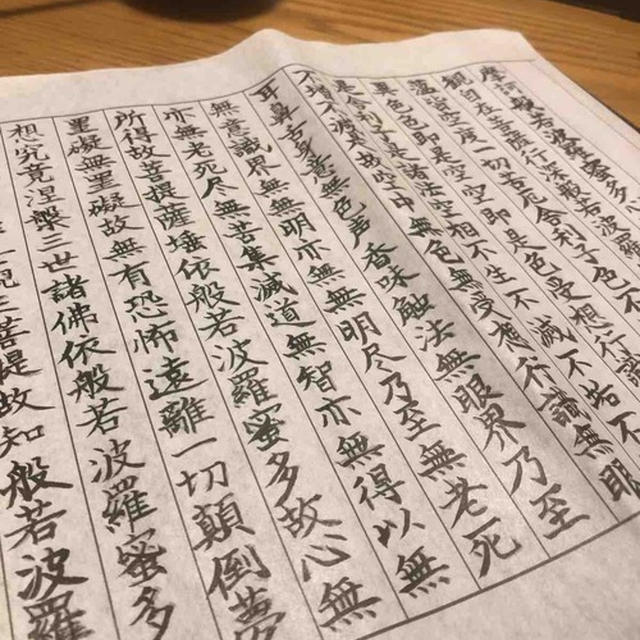 摩訶般若波羅蜜多
観自在菩薩行深般若波羅
蘊皆空度一切苦厄舎利子色不
色色即是空空即是色受想行識
是舎利子是諸法空相不生不滅不垢不
不増不減是故空中無色無受想行識無眼
耳鼻舌身意無色声香味触法無眼界乃至
無意識界無無明亦無無明尽乃至無老死
亦無老死尽無苦集滅道無智亦無得以無
所得故菩提薩埵依般若波羅蜜多故心無
罣礙無罣礙故無有恐怖遠離一切顛倒夢
想究竟涅槃三世諸佛依般若波羅蜜多
三菩提故知般若波羅